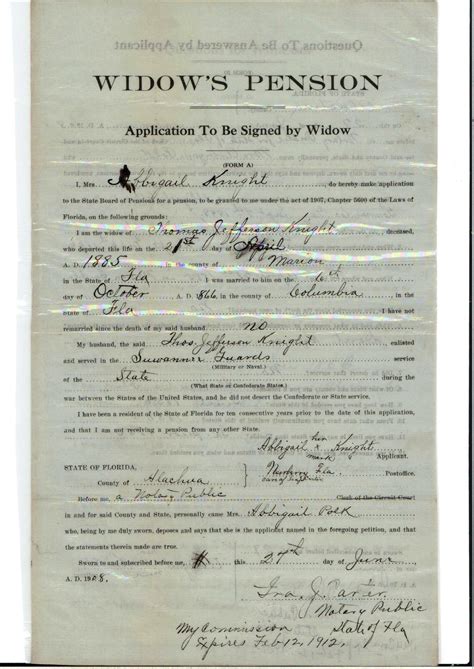 Questions To Be Answered by Applicant
WIDOW'S PENSION
Application To Be Signed by Widow
(FORM A)
I, Mrs. Abbigail Knight, do hereby make application
to the State Board of Pensions for a pension, to be granted to me under the act of 1907, Chapter 5600 of the Laws of
Florida, on the following grounds:
I am the widow of Thomas Jefferson Knight, deceased,
who departed this life on the 21st day of April
A. D. 1885 in the county of Marion
in the State of Fla I was married to him on the 6th
day of October A. D. 1866 in the county of Columbia, in the
State of Fla I have not
remarried since the death of my said husband. no
My husband, the said Thos. Jefferson Knight enlisted
and served in the Suwannee Guards service
(Military or Naval.)
of the State during the
(What State or Confederate States.)
war between the States of the United States, and he did not desert the Confederate or State service.
I have been a resident of the State of Florida for ten consecutive years prior to the date of this application,
and that I am not receiving a pension from any other State.
Abbigail her x mark Knight
Applicant.
STATE OF FLORIDA, Newberry Fla Postoffice.
County of Alachua
Before me, a Notary Public Clerk of the Circuit Court
in and for said County and State, personally came Mrs. Abbigail Polk
who, being by me duly sworn, deposes and says that she is the applicant named in the foregoing petition, and that
the statements therein made are true.
Sworn to and subscribed before me, this 27th day of June
A. D. 1908.
Ira J.
Notary Public
My Commission State of Fla
Expires Feb 12, 1912.